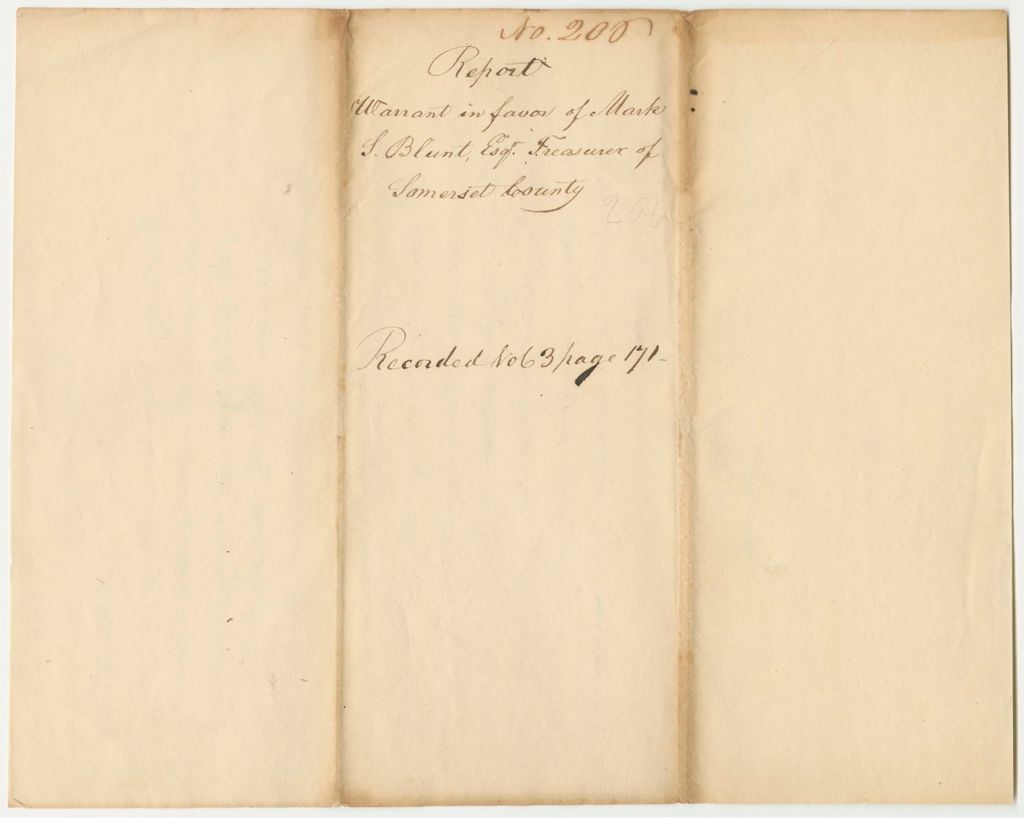 No. 200
Report
Warrant in favor of Mark
S. Blunt, Esqr. Treasurer of
Somerset County
206
Recorded Vol 3 page 171-